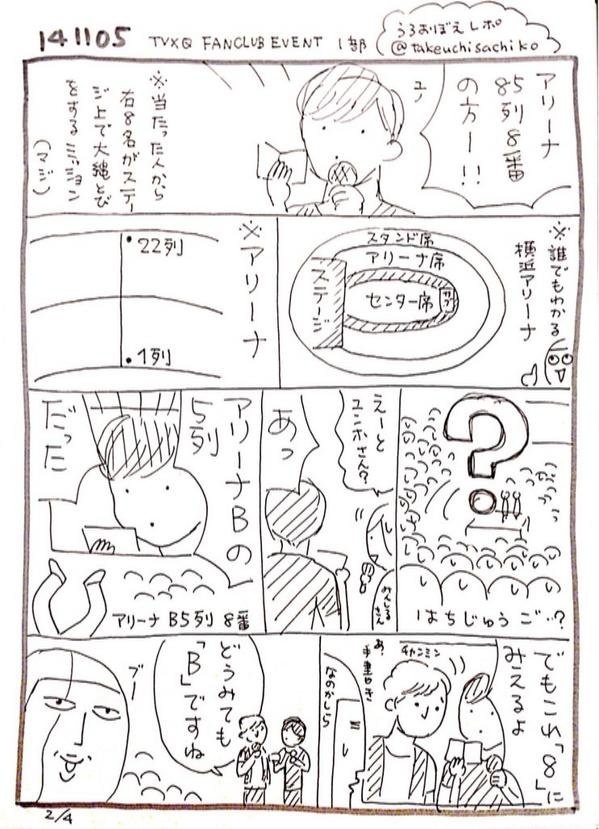 141105 TVXQ FANCLUB EVENT 1部
うろおぼえレポ
@takeuchisachiko
アリーナ
85列8番
の方ー!!
ユノ
※当たった人から
右8名がステー
ジ上で大縄とび
をするミッション
(マジ)
※誰でもわかる
横浜アリーナ
スタンド席
アリーナ席
センター席
ステージ
※アリーナ
•22列
•1列
?
はちじゅうご…?
えーと
ユンホさん?
あっ
みんしるさん
アリーナBの
5列
だった
アリーナ B5列 8番
でもこれ「8」に
みえるよ
チャンミン
あ、
手書き
なのかしら
どうみても
「B」ですね
ブー
2/4